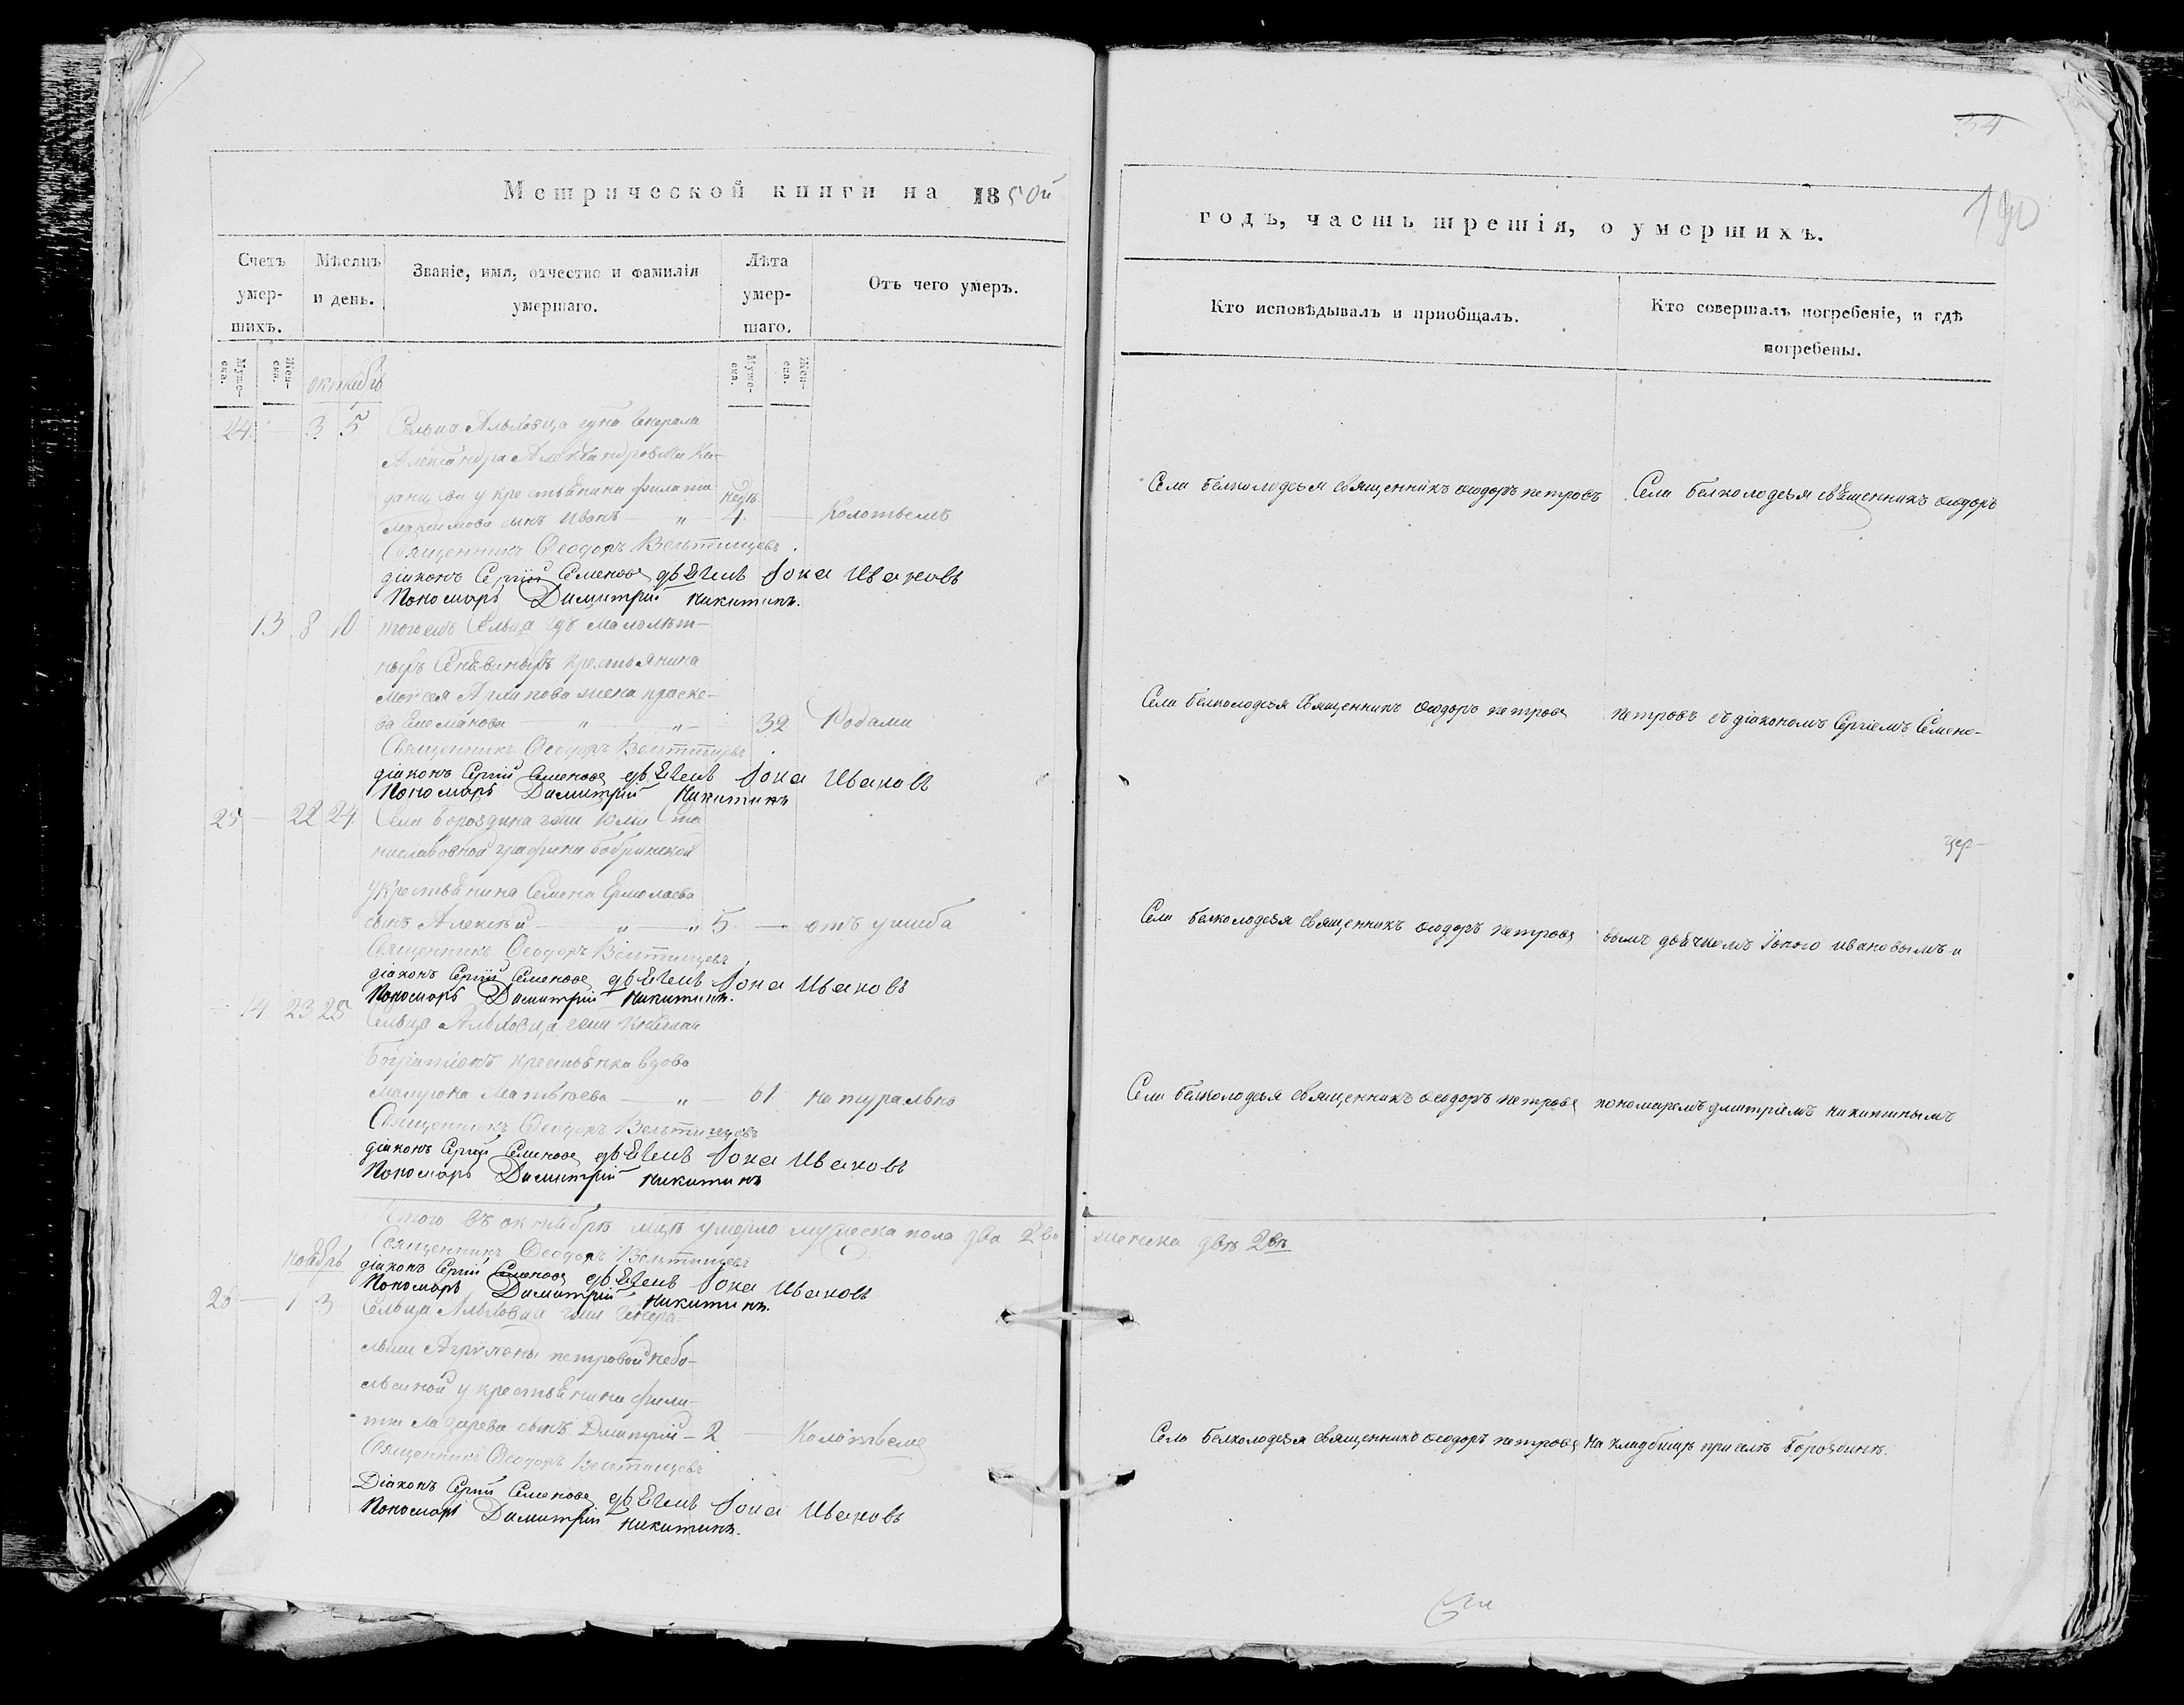 34
190
Метрической книги на 1850й
годъ, часть третія, о умершихъ.
Счетъ умер-шихъ.
Мѣсяцъ и день.
Званіе, имя, отчество и фамилія умершаго.
Лѣта умер-шаго.
Отъ чего умеръ.
Кто исповѣдывалъ и пріобщалъ.
Кто совершалъ погребеніе, и гдѣ погребены.
Муже-ска.
Жен-ска.
Муже-ска.
Жен-ска.
октябрь
24 — 3 5 Сельца Альховца генерала
Александра Александровича
у крестьянина Филата недѣ.
Максимова сынъ Иванъ — " — 4 — Колотьемъ
Священникъ Ѳеодоръ Вельтищевъ
діаконъ Сергій Семеновъ дьячекъ Іона Ивановъ
Пономарь Димитрій Никитинъ.
13 8 10 тогожъ Сельца гдъ малолѣт-
ныхъ крестьянина
Моисея Архипова жена праске-
ва — " — " — 32 Родами
Священникъ Ѳеодоръ Вельтищевъ
діаконъ Сергій Семеновъ дьячекъ Іона Ивановъ
Пономарь Димитрій Никитинъ
25 — 22 24 Села Бороздина гжи Юліи Ста
ниславовной графини Бобринской
у крестьянина Семена Ермолаева
сынъ Алексѣй — " — " 5 — отъ ушиба
Священникъ Ѳеодоръ Вельтищевъ
діаконъ Сергій Семеновъ дьячекъ Іона Ивановъ
Пономарь Димитрій Никитинъ.
14 23 25 Сельца Альховца гжи Княгини
Багратіонъ крестьянка вдова
Матвѣева — " — 61 натурально
Священникъ Ѳеодоръ Вельтищевъ
діаконъ Сергій Семеновъ дьячекъ Іона Ивановъ
Пономарь Димитрій Никитинъ
Итого въ октябрѣ мцѣ умерло мужеска пола два 2ва женска двѣ 2вѣ
Священникъ Ѳеодоръ Вельтищевъ
ноябрь
діаконъ Сергій Семеновъ дьячекъ Іона Ивановъ
Пономарь Димитрій Никитинъ.
26 — 1 3 Сельца Альховца гжи Генера-
льши Агрипены петровой небо-
льсиной у крестьянина фили-
па Лазарева сынъ Димитрій — 2 — Колотьемъ
Священникъ Ѳеодоръ Вельтищевъ
Діаконъ Сергій Семеновъ дьячекъ Іона Ивановъ
Пономарь Димитрій Никитинъ.
Села Белколодезя священникъ ѳеодоръ петровъ
Села Белколодезя священникъ ѳеодоръ
Села Белколодезя Священникъ ѳеодоръ петровъ
петровъ съ діакономъ Сергіемъ Семено-
Села Белколодезя священникъ ѳеодоръ петровъ
вымъ дьячкомъ Іоною ивановымъ и
Села Белколодезя священникъ ѳеодоръ петровъ
пономаремъ дмитріемъ никитинымъ
Села Белколодезя священникъ ѳеодоръ петровъ
на кладбищѣ при селѣ Бороздинѣ.